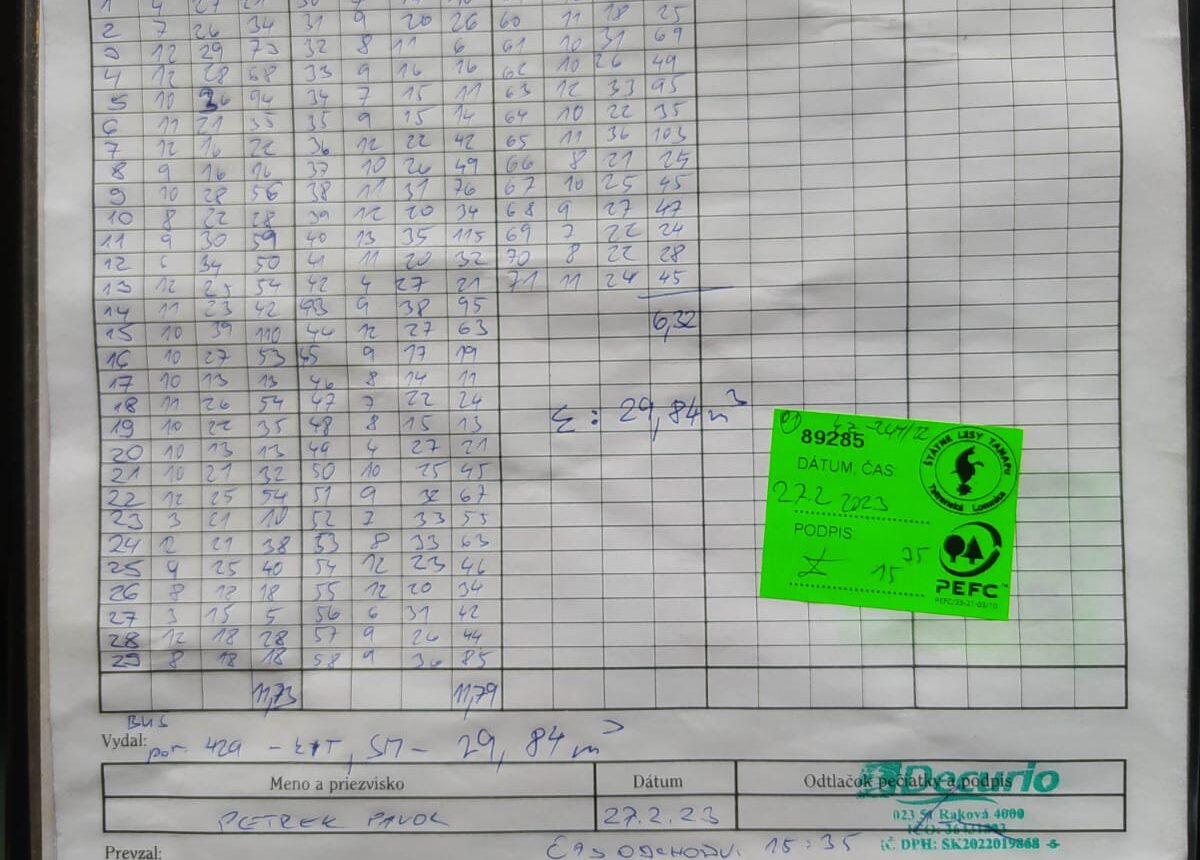 2 7 26 34 31 9 20 26 60 11 18 25
3 12 29 73 32 8 11 6 61 10 31 69
4 12 28 68 33 9 16 16 62 10 26 49
5 10 94 34 7 15 11 63 12 33 95
6 11 21 35 35 9 15 14 64 10 22 35
7 12 16 22 36 12 22 42 65 11 36 103
8 9 16 16 37 10 26 49 66 8 21 25
9 10 28 56 38 11 31 76 67 10 25 45
10 8 22 28 39 12 20 34 68 9 27 47
11 9 30 59 40 13 35 115 69 7 22 24
12 6 34 50 41 11 20 32 70 8 22 28
13 12 25 54 42 4 27 21 71 11 24 45
14 11 23 42 43 9 38 95
15 10 39 110 44 12 27 63
6,32
16 10 27 53 45 9 17 19
17 10 13 13 46 8 14 11
18 11 26 54 47 7 22 24
19 10 22 35 48 8 15 13
20 10 13 13 49 4 27 21
21 10 21 32 50 10 25 45
22 12 25 54 51 9 32 67
23 3 21 10 52 7 33 55
24 12 21 38 53 8 33 63
25 9 25 40 54 12 23 46
26 8 18 18 55 12 20 34
27 3 15 5 56 6 31 42
28 12 18 28 57 9 26 44
29 8 18 18 58 9 36 85
11,73 11,79
Σ : 29,84 m³
89285
ŠTÁTNE LESY TANAPU
Tatranská Lomnica
DÁTUM, ČAS
27.2 2023
PODPIS
15 35
PEFC™
PEFC/23-21-03/10
Vydal: por. 429 - , SM - 29,84 m³
Meno a priezvisko Dátum Odtlačok pečiatky a podpis
PETREK PAVOL 27.2.23
Decurio
023 51 Raková 4000
IČ DPH: SK2022019868 -5-
Prevzal: ČAS ODCHODU: 15:35